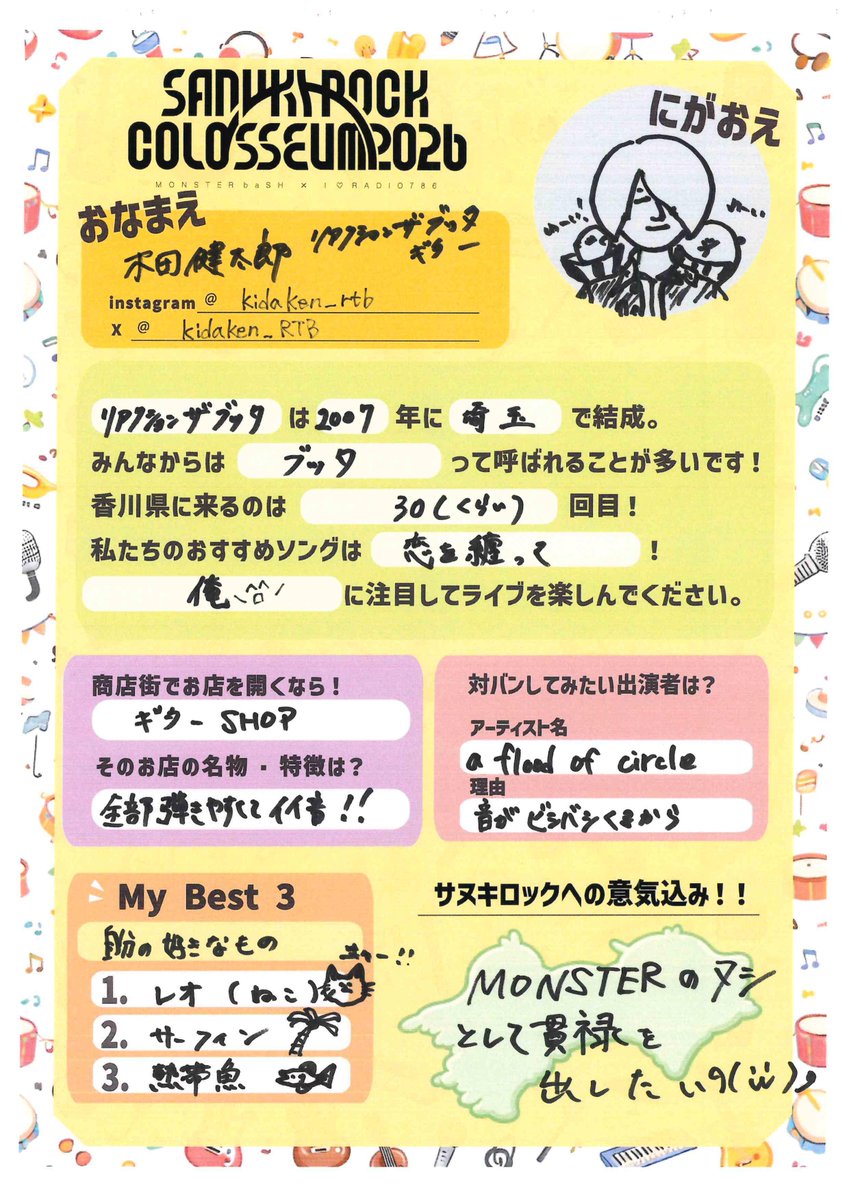 SANUKI ROCK
COLOSSEUM 2026
MONSTER baSH × I♡RADIO786
にがおえ
おなまえ
木田健太郎 リアクション ザ ブッタ
ギター
instagram @ kidaken_rtb
X @ kidaken_RTB
リアクション ザ ブッタ は 2007 年に 埼玉 で結成。
みんなからは ブッタ って呼ばれることが多いです!
香川県に来るのは 30(くらい) 回目!
私たちのおすすめソングは 恋を纏って !
俺 に注目してライブを楽しんでください。
商店街でお店を開くなら!
ギター SHOP
そのお店の名物・特徴は?
全部弾きやすくてイイ音!!
対バンしてみたい出演者は?
アーティスト名
a flood of circle
理由
音がビシバシくるから
My Best 3
自分の好きなもの
1. レオ(ねこ)
2. サーフィン
3. 熱帯魚
サヌキロックへの意気込み!!
MONSTERのヌシ
として貫禄を
出したい